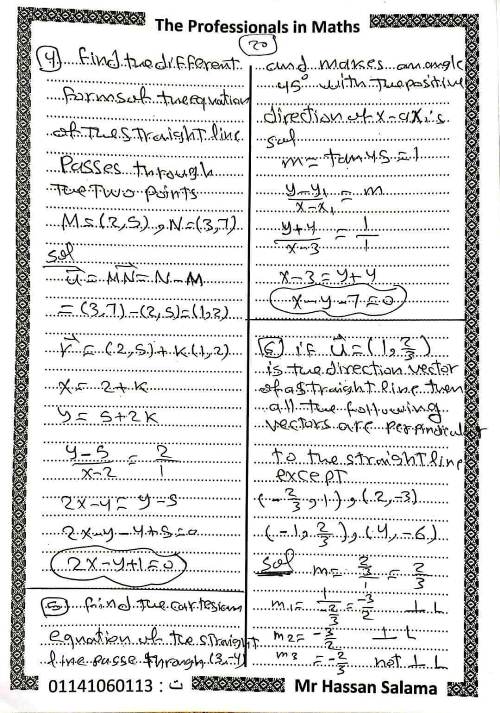 The Professionals in Maths
20
4) find the different
forms of the equation
of the straight line
Passes through
the two points
M = (2,5) , N = (3,7)
sol
u = MN = N - M
= (3,7) - (2,5) = (1,2)
r = (2,5) + k (1,2)
x = 2 + k
y = 5 + 2k
y-5/x-2 = 2/1
2x-4 = y-5
2x-y-4+5=0
2x-y+1=0
5) find the cartesian
equation of the straight
line passe through (3,-4)
and makes an angle
45° with the positive
direction of x-axis
sol
m = tan 45 = 1
y-y1/x-x1 = m
y+4/x-3 = 1/1
x-3 = y+4
x-y-7=0
6) if u = (1, 2/3)
is the direction vector
of a straight line then
all the following
vectors are perpendicular
to the straight line
except
(-2/3, 1) , (2,-3)
(-1, 2/3) , (4,-6)
sol m = 2/3/1 = 2/3
m1 = 1/-2/3 = -3/2 ⊥ L
m2 = -3/2 ⊥ L
m3 = -2/3 not ⊥ L
01141060113 : ت
Mr Hassan Salama